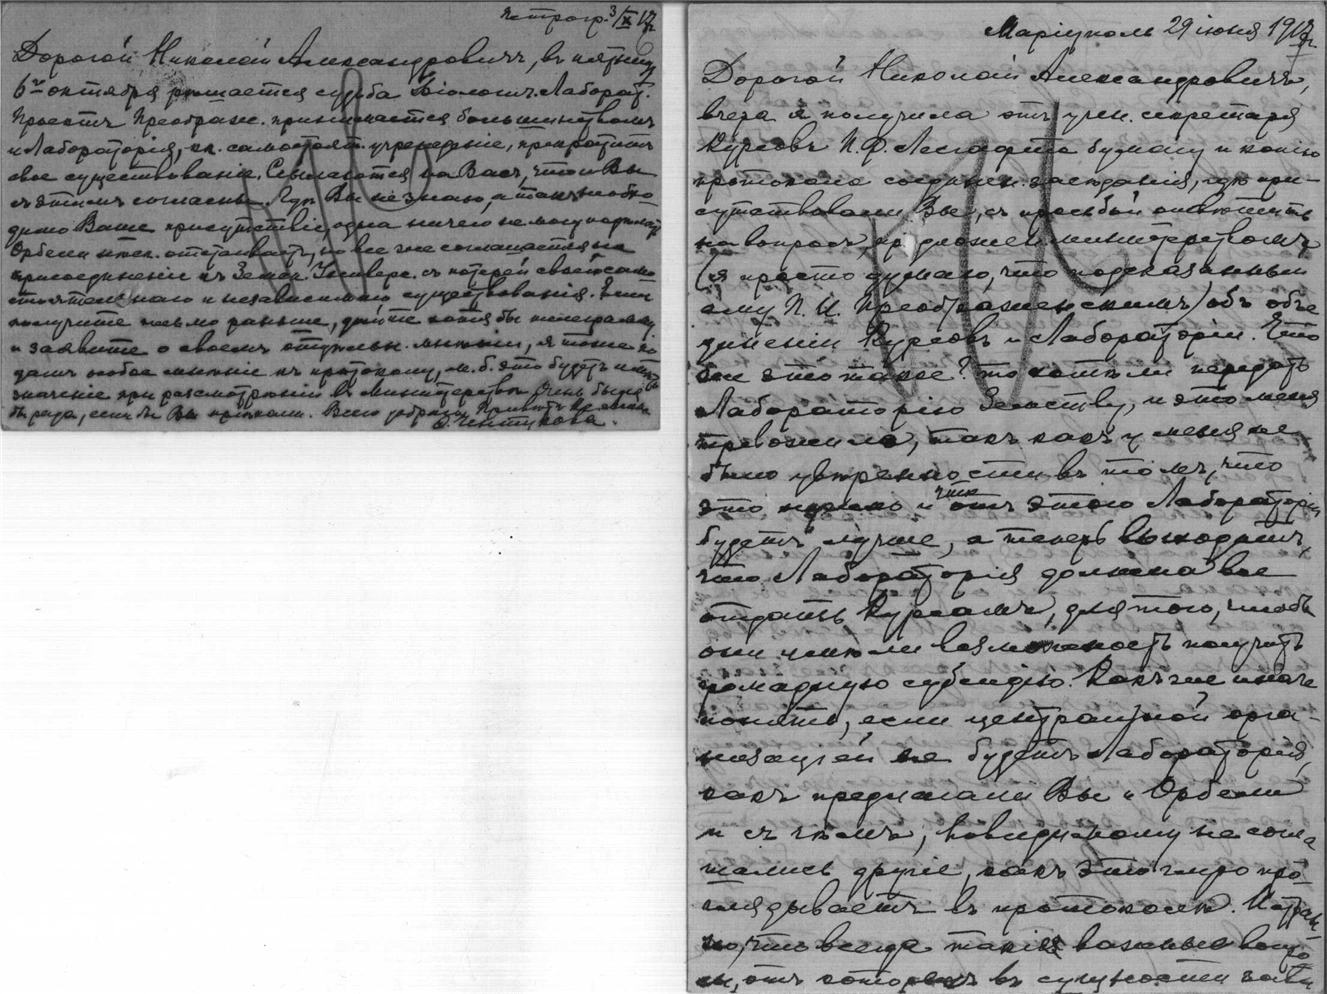 Петрогр. 3/X 17 г.
Дорогой Николай Александровичъ, въ пятницу
6го октября рѣшается судьба Біологич. Лаборат.
Проектъ Преображ. принимается большинствомъ
и Лабораторія, какъ самостоят. учрежденіе, прекратитъ
свое существованіе. Ссылаются на Васъ, что и Вы
съ этимъ согласны. Гдѣ Вы не знаю, а такъ необхо
димо Ваше присутствіе, одна ничего не могу подѣлать
Орбели отстаиваетъ, но все же соглашается на
присоединеніи къ Универс. съ потерей своего само
стоятельнаго и независимаго существованія. Если
получите письмо раньше, дайте хотя бы телеграмму
и заявите о своемъ отдѣльн. мнѣніи, я тоже по
дамъ особое мнѣніе къ протоколу, м. б. это будетъ имѣть
значеніе при разсмотрѣніи въ Министерствѣ. Очень была
бы рада, если бы Вы пріѣхали. Всего добраго. Привѣтъ
Маріуполь 29 іюня 1917 г.
Дорогой Николай Александровичъ,
вчера я получила отъ учен. секретаря
Курсовъ П. Ф. Лесгафта бумагу и копію
протокола соединен. засѣданія, гдѣ при-
сутствовали Вы, съ просьбой отвѣтить
на вопросъ, предложен. министерствомъ
(я просто думаю, что подсказанный
ему П. И. Преображенскимъ) объ объе
диненіи Курсовъ и Лабораторіи. Что
же это такое? то хотѣли передать
Лабораторію Земству, и это меня
тревожило, такъ какъ у меня не
было увѣренности въ томъ, что
это нужно и что отъ этого Лабораторіи
будетъ лучше, а теперь выходитъ,
что Лабораторія должна все
отдать Курсамъ, для того, чтобы
они имѣли возможность получить
громадную субсидію. Какъ же иначе
понять, если центральной орга-
низаціей не будетъ Лабораторія,
какъ предлагали Вы и Орбели
и съ чѣмъ, повидимому не согла
шались другіе, какъ это ... про
глядываетъ въ протоколѣ. И стран-
но, что всегда такіе важные вопро
сы, отъ которыхъ въ сущности зави